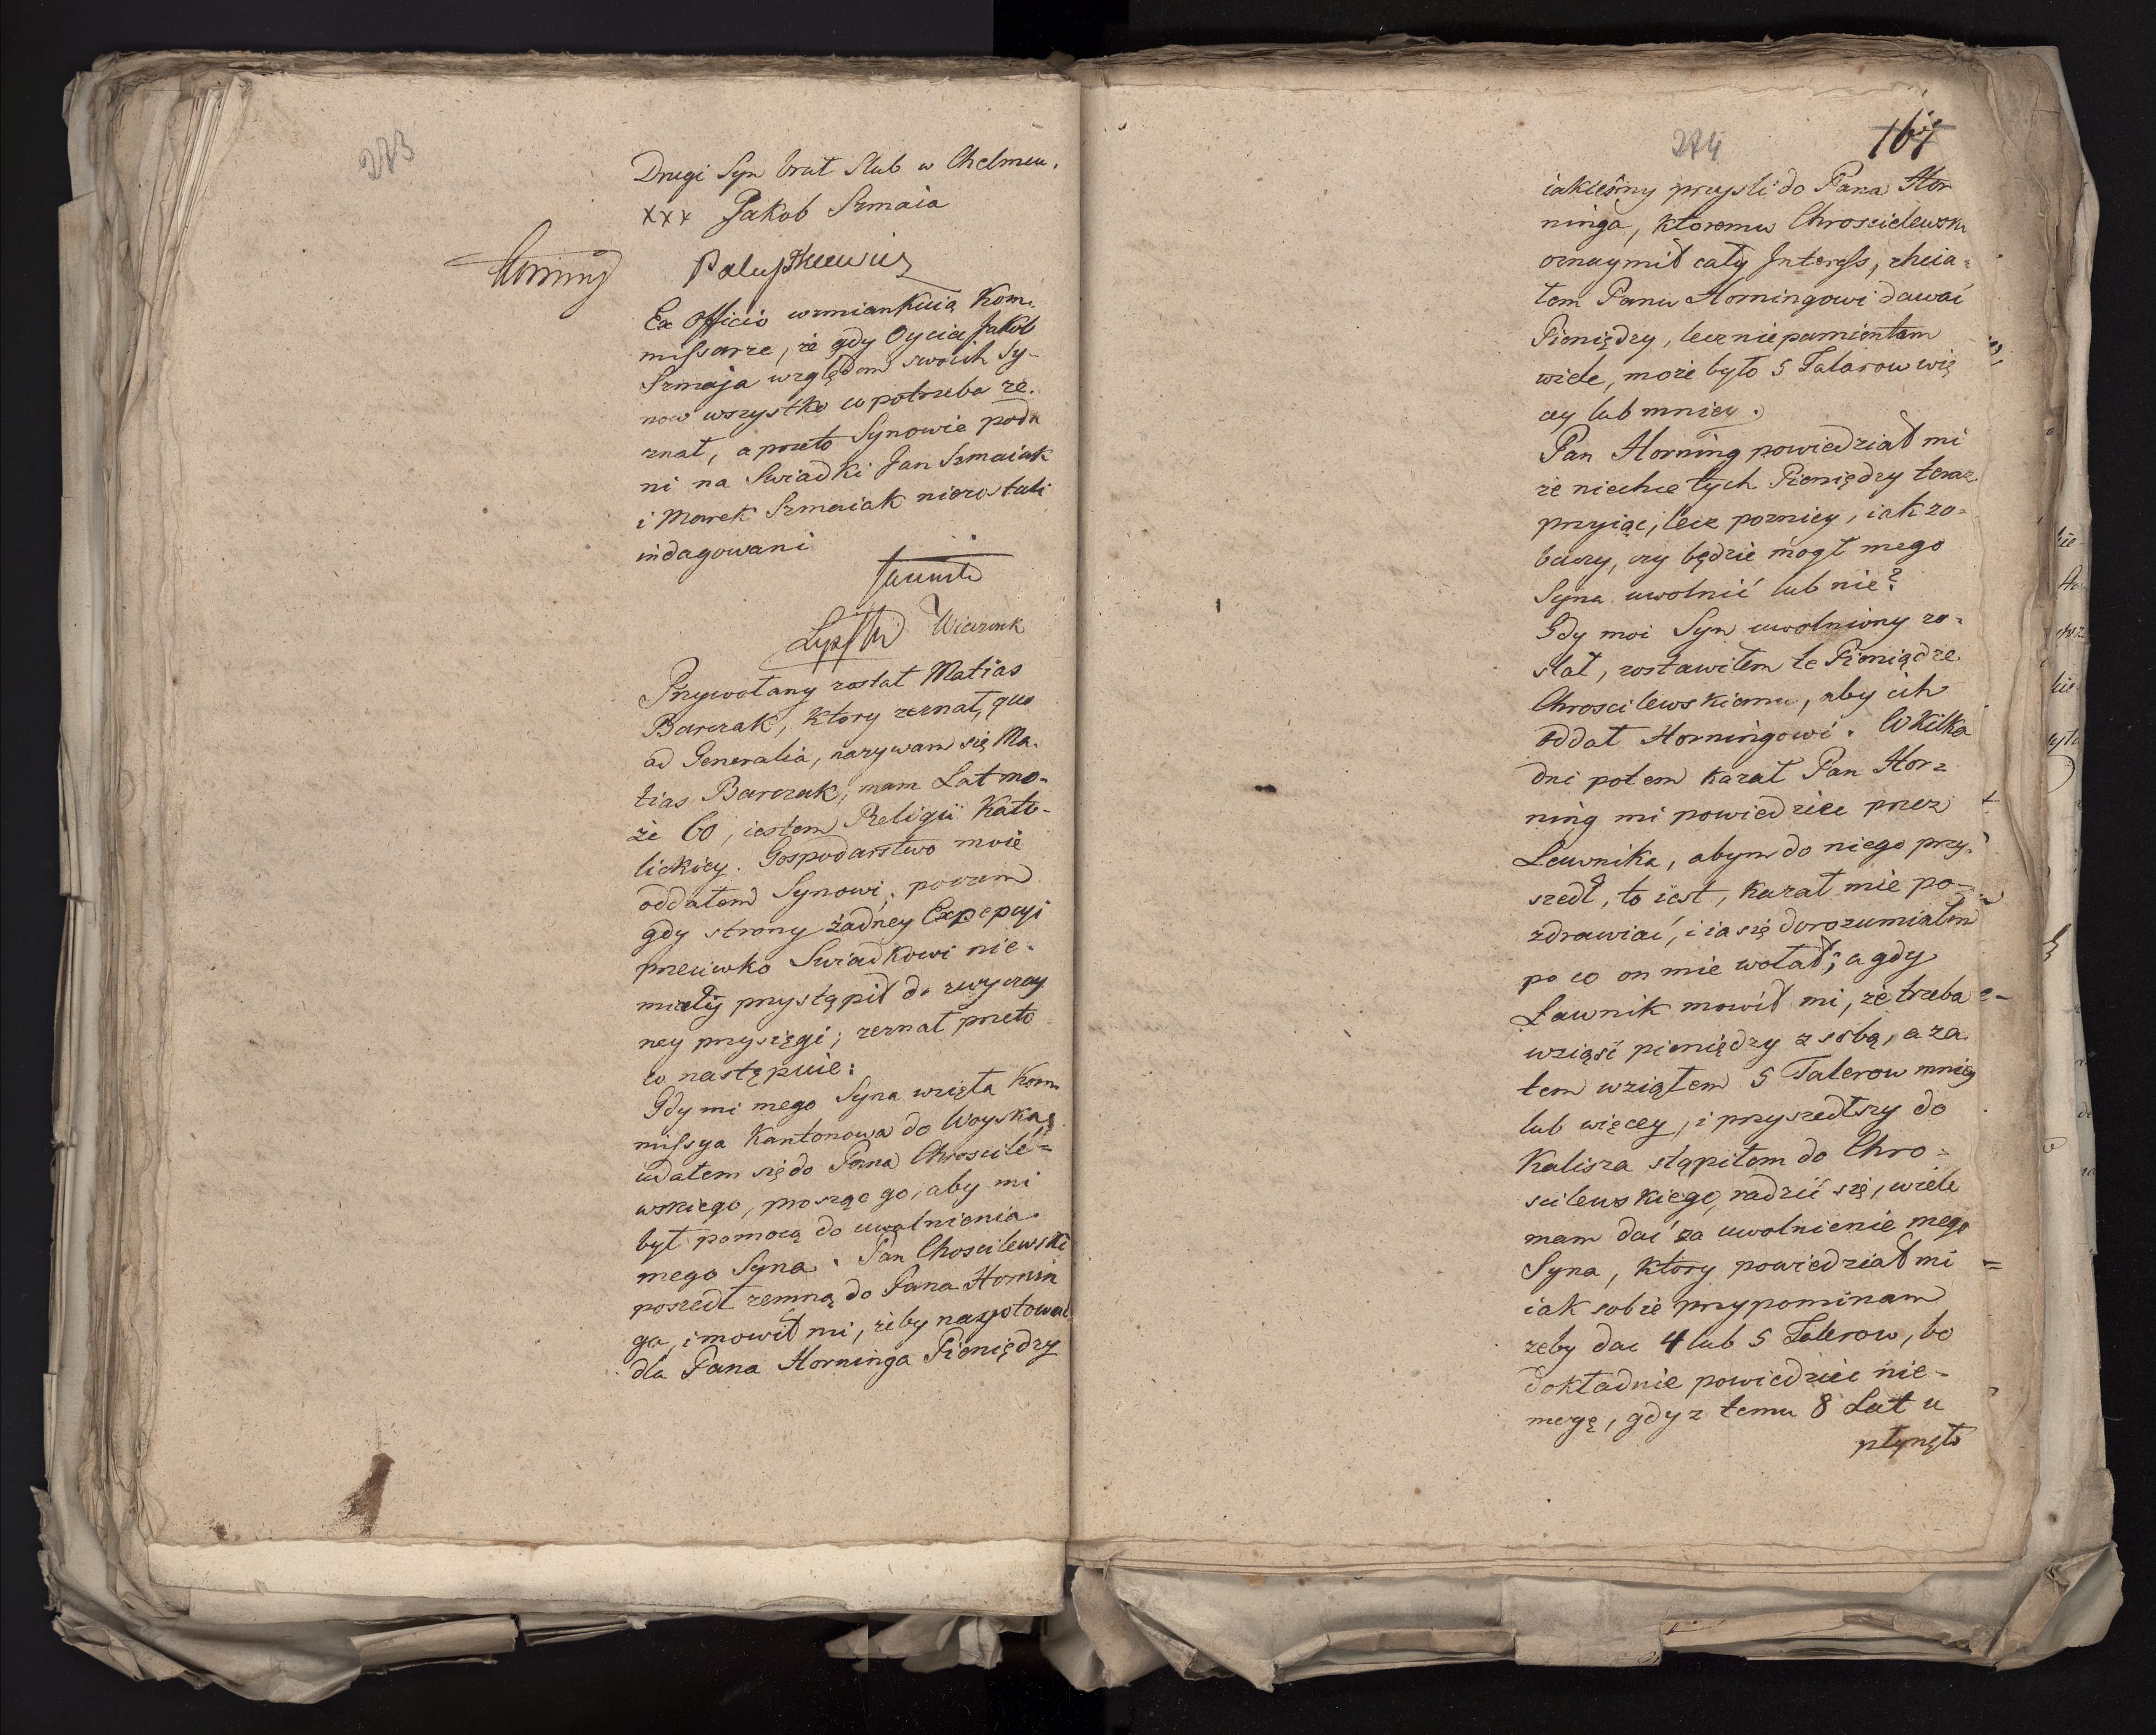 273
Drugi Syn brał Slub w Chelmcu.
xxx Jakob Szmaia
Horning
Ex Officio wzmiankuią Kom¬
missarze, że gdy Oyciec Jakob
Szmaja względem swoich Sy-
now wszystko co potrzeba ze¬
znał, a przeto Synowie poda
ni na Swiadki Jan Szmaiak
i Marek Szmaiak niezostali
indagowani
Wieczorek
Przywołany został Matias
Barczak, ktory zeznał, quo
ad Generalia, nazywam się Ma¬
tias Barczak, mam Lat mo-
że 60, iestem Religii Kato-
lickiey. Gospodarstwo moie
oddałem Synowi; poczem
gdy strony żadney Excepcyi
przeciwko Swiadkowi nie¬
miały przystąpił do zwyczay
ney przysięgi; zeznał przeto
co następuie:
Gdy mi mego Syna wzięła Kom
missya Kantonowa do Woyska,
udałem się do Pana Chroscile=
wskiego, prosząc go, aby mi
był pomocą do uwolnienia
mego Syna. Pan Choscilewski
poszedł zemną do Pana Hornin
ga, i mowił mi, żeby nagotować
dla Pana Horninga Pieniędzy
274
167
iakiesmy przysli do Pana Hor
ninga, ktoremu Chroscielewski
oznaymił cały Interess, chcia=
łem Panu Horningowi dawać
Pieniędzy, lecz nie pamientam
wiele, może było 5 Talarow wię
cy lub mniey.
Pan Horning powiedział mi
że niechce tych Pieniędzy teraz
przyiąc, lecz pozniey, iak zo=
baczy, czy będzie mogł mego
Syna uwolnić lub nie?
Gdy moi Syn uwolniony zo=
stał, zostawiłem te Pieniądze
Chroscilewskiemu, aby ich
oddał Horningowi. W Kilka
dni potem kazał Pan Hor=
ning mi powiedziec przez
Ławnika, abym do niego przy=
szedł, to iest, kazał mie po-
zdrawiać, i ia się dorozumiałem
po co on mie wołał; a gdy
Ławnik mowił mi, że trzeba
wziąść pieniędzy z sobą, a za
tem wziąłem 5 Talerow mniey
lub więcey, i przyszedłszy do
Kalisza stąpiłem do Chro=
scilewskiego, radzić się, wiele
mam dać za uwolnienie mego
Syna, ktory powiedział mi
iak sobie przypominam
zeby dac 4 lub 5 Talerow, bo
dokładnie powiedziec nie-
mogę, gdyz temu 8 Lat u
płynęło